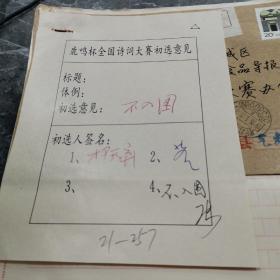 鹿鸣杯全国诗词大赛初选意见
标题：
体例：
初选意见：不入围
初选人签名：
1、 2、
3、 4、不入围
21—257
城区
品导报
大赛办
20